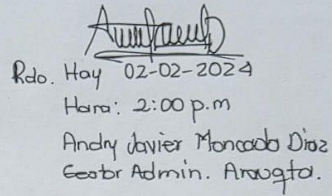 Rdo. Hoy 02-02-2024
Hora: 2:00 p.m
Andry Javier Moncada Diaz
Gestor Admin.